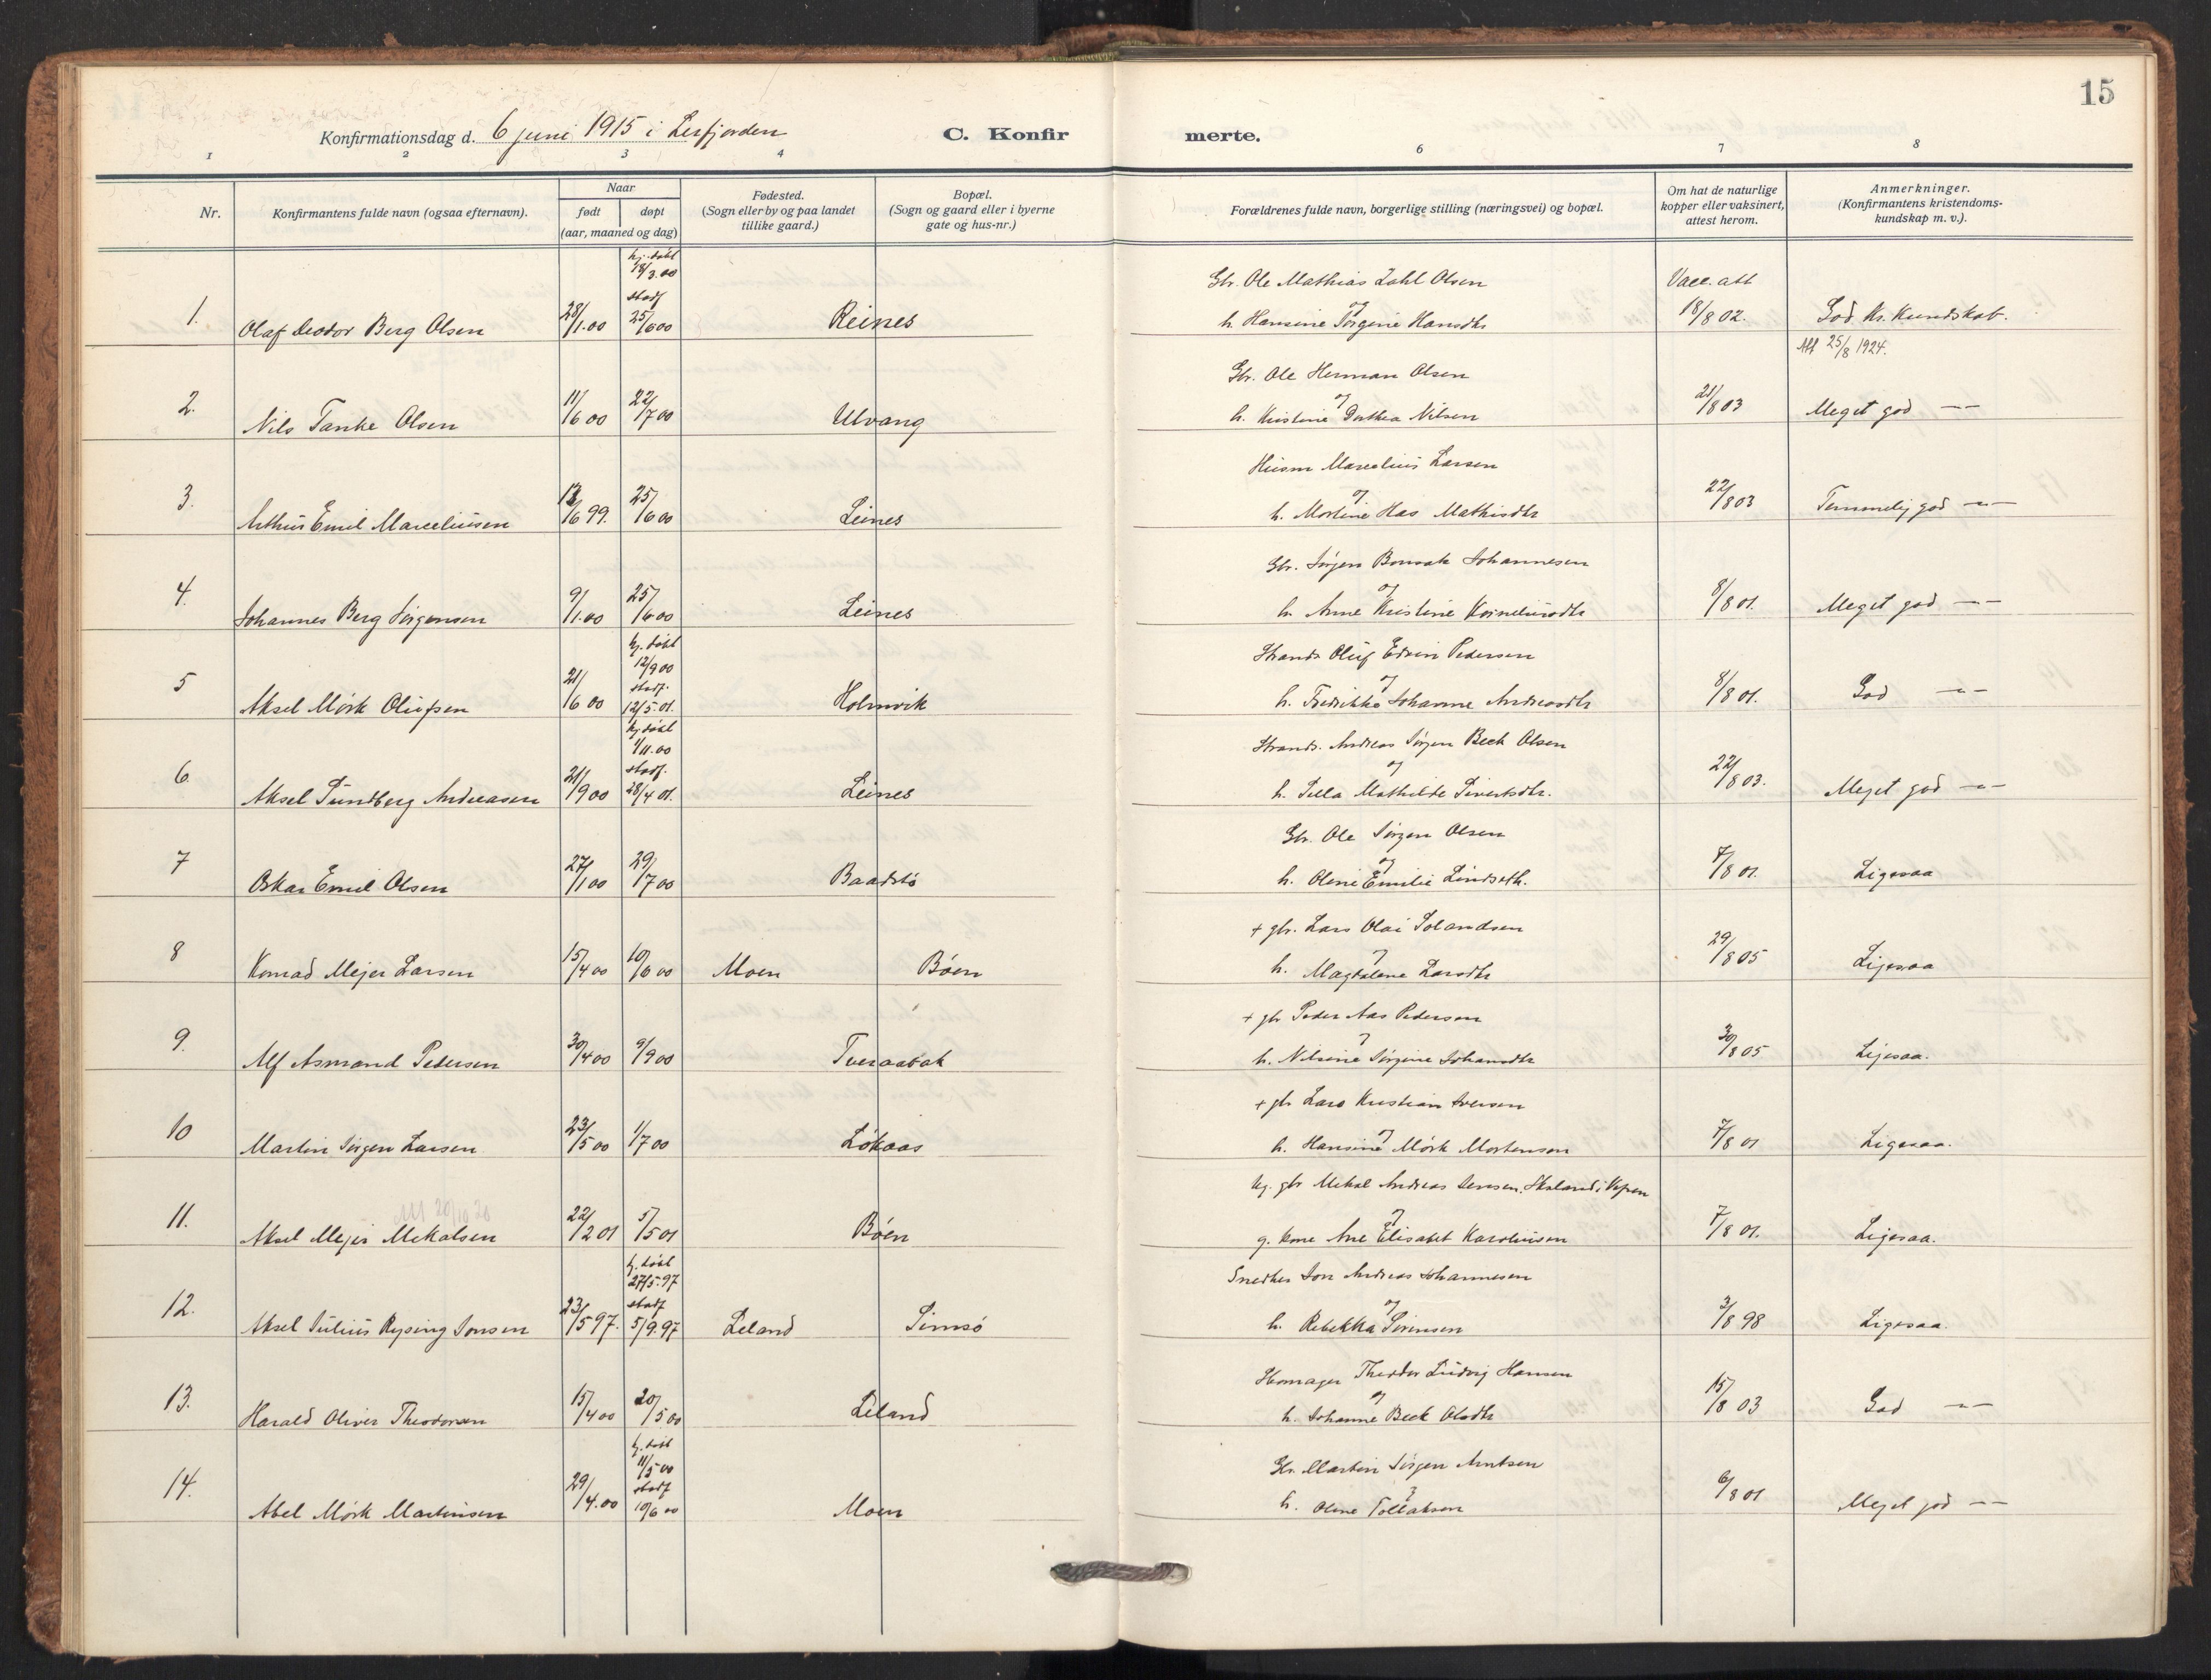 15
Konfirmationsdag d. 6 juni 1915 i Leirfjorden
C. Konfir merte.
1 2 3 4 6 7 8
Nr.
Konfirmantens fulde navn (ogsaa efternavn).
Naar
født døpt
(aar, maaned og dag)
Fødested.
(Sogn eller by og paa landet
tillike gaard.)
Bopæl.
(Sogn og gaard eller i byerne
gate og hus-nr.)
Forældrenes fulde navn, borgerlige stilling (næringsvei) og bopæl.
Om hat de naturlige
kopper eller vaksinert,
attest herom.
Anmerkninger.
(Konfirmantens kristendoms-
kundskap m. v.).
hj. døbt
18/3.00
stadf
Gbr. Ole Mathias Zahl Olsen
og
Vacc. att
1. Olaf Deodor Berg Olsen 28/1.00 25/6 00 Reines h. Hansine Jørgine Hansdtr 18/8 02. God Kr. Kundskab.
Att 25/8 1924.
Gbr. Ole Herman Olsen
og
2. Nils Tanke Olsen 11/6 00 22/7 00 Ulvang h. Kristine Dorthea Nilsen 21/8 03 Meget god —"—
Husm Marcelius Larsen
og
3. Arthur Emil Marceliussen 13/6 99. 25/6 00 Leines h. Mortine Has Mathisdtr 22/8 03 Temmelig god —"—
Gbr. Jørgen Bonsak Johannesen
og
4. Johannes Berg Jørgensen 9/1.00 25/6 00 Leines h. Anne Kristine Korneliusdtr 8/8 01. Meget god —"—
hj. døbt
12/9 00
stadf.
Strands. Oluf Edvin Pedersen
og
5 Aksel Mørk Olufsen 21/6 00 12/5.01. Holmvik h. Fredrikke Johanne Andreasdtr 8/8 01. God —"—
hj. døbt
1/11.00
stadf.
Strands. Andreas Jørgen Beck Olsen
og
6. Aksel Sundberg Andreasen 21/9 00 28/4 01. Leines h. Sella Mathilde Sivertsdtr. 22/8 03. Meget god —"—
Gbr. Ole Jørgen Olsen
og
7 Oskar Emil Olsen 27/1 00 29/7 00 Baadstø h. Oline Emilie Lindseth. 7/8 01. Ligesaa
+ gbr. Lars Olai Tolandsen
og
8 Konrad Mejer Larsen 15/4 00 10/6 00 Moen Bøen h. Magdalene Larsdtr 29/8 05 Ligesaa
+ gbr Peder Aas Pedersen
og
9. Alf Asmand Pedersen 30/4 00 9/9 00 Tveraabak h. Nilsine Jørgine Johansdtr 30/8 05 Ligesaa.
+ gbr Lars Kristian Iversen
og
10 Martin Jørgen Larsen 23/5 00 1/7 00 Løkaas h. Hansine Mørk Mortensen 7/8 01 Ligesaa.
Ug. gbr Mikal Andreas Jensen, Skaland i Vefsen
og
Att 20/10 20
11. Aksel Mejer Mikalsen 22/2 01 5/5 01 Bøen g. kone Ane Elisabet Karoliusen 7/8 01. Ligesaa.
hj. døbt
27/5.97
stadf
Snedker Jon Andreas Johannesen
og
12. Aksel Julius Rysing Jonsen 23/5 97. 5/9.97 Leland Simsø h. Rebekka Sørensen 3/8 98 Ligesaa.
Skomager Theodor Ludvig Hansen
og
13. Harald Oliver Theodorsen 15/4 00 20/5 00 Leland h. Johanne Beck Olsdtr 15/8 03 God —"—
hj. døbt
11/5 00
stadf
Gbr. Martin Jørgen Arntsen
og
14. Abel Mørk Martinsen 29/4.00 10/6 00 Moen h. Oline Tollaksen 6/8 01 Meget god —"—